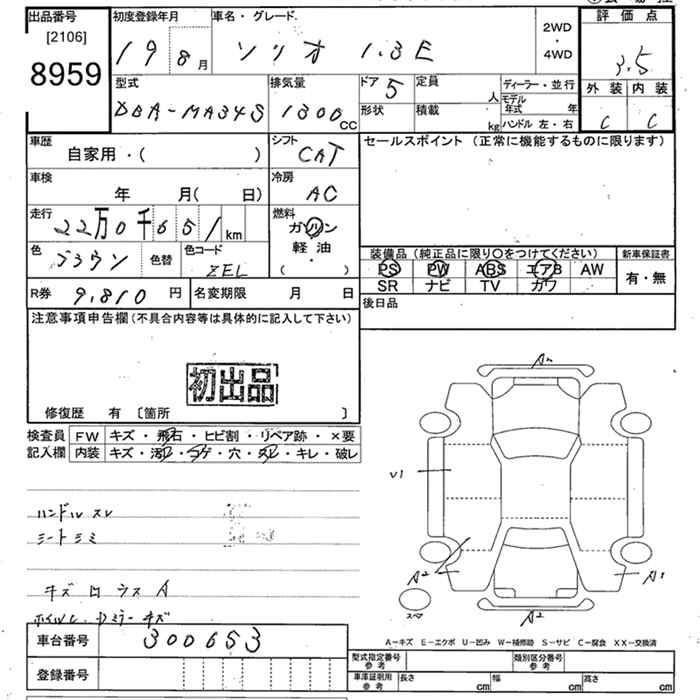 出品番号 初度登録年月 車名・グレード 評価点
[2106] 8959
19 8月 ソリオ 1.3E 2WD・4WD 3.5
型式 排気量 ドア 5 定員 人 ディーラー・並行 外装 内装
DBA-MA34S 1300cc 形状 積載 kg モデル年式 年 ハンドル 左・右 C C
車歴 シフト セールスポイント (正常に機能するものに限ります)
自家用・( ) CAT
車検 年 月( 日) 冷房 AC
走行 22万0千651km 燃料 ガソリン 軽油 ( )
色 ブラウン 色替 色コード ZEL
装備品 (純正品に限り○をつけてください) 新車保証書
PS PW ABS エアB AW 有・無
SR ナビ TV ガワ
R券 9,810円 名変期限 月 日 後日品
注意事項申告欄 (不具合内容等は具体的に記入して下さい)
初出品
修復歴 有 [箇所 ]
検査員 FW キズ・飛石・ヒビ割・リペア跡・×要
記入欄 内装 キズ・汚レ・コゲ・穴・スレ・キレ・破レ
ハンドルスレ
シートシミ
キズ ロ ウス A
ホイルC ドミラーキズ
A
U1
A2
A1
スペア
A2
A-キズ E-エクボ U-凹み W-補修跡 S-サビ C-腐食 XX-交換済
車台番号 300653
登録番号
型式指定番号 参考 類別区分番号 参考
車庫証明用 参考 長さ cm 幅 cm 高さ cm